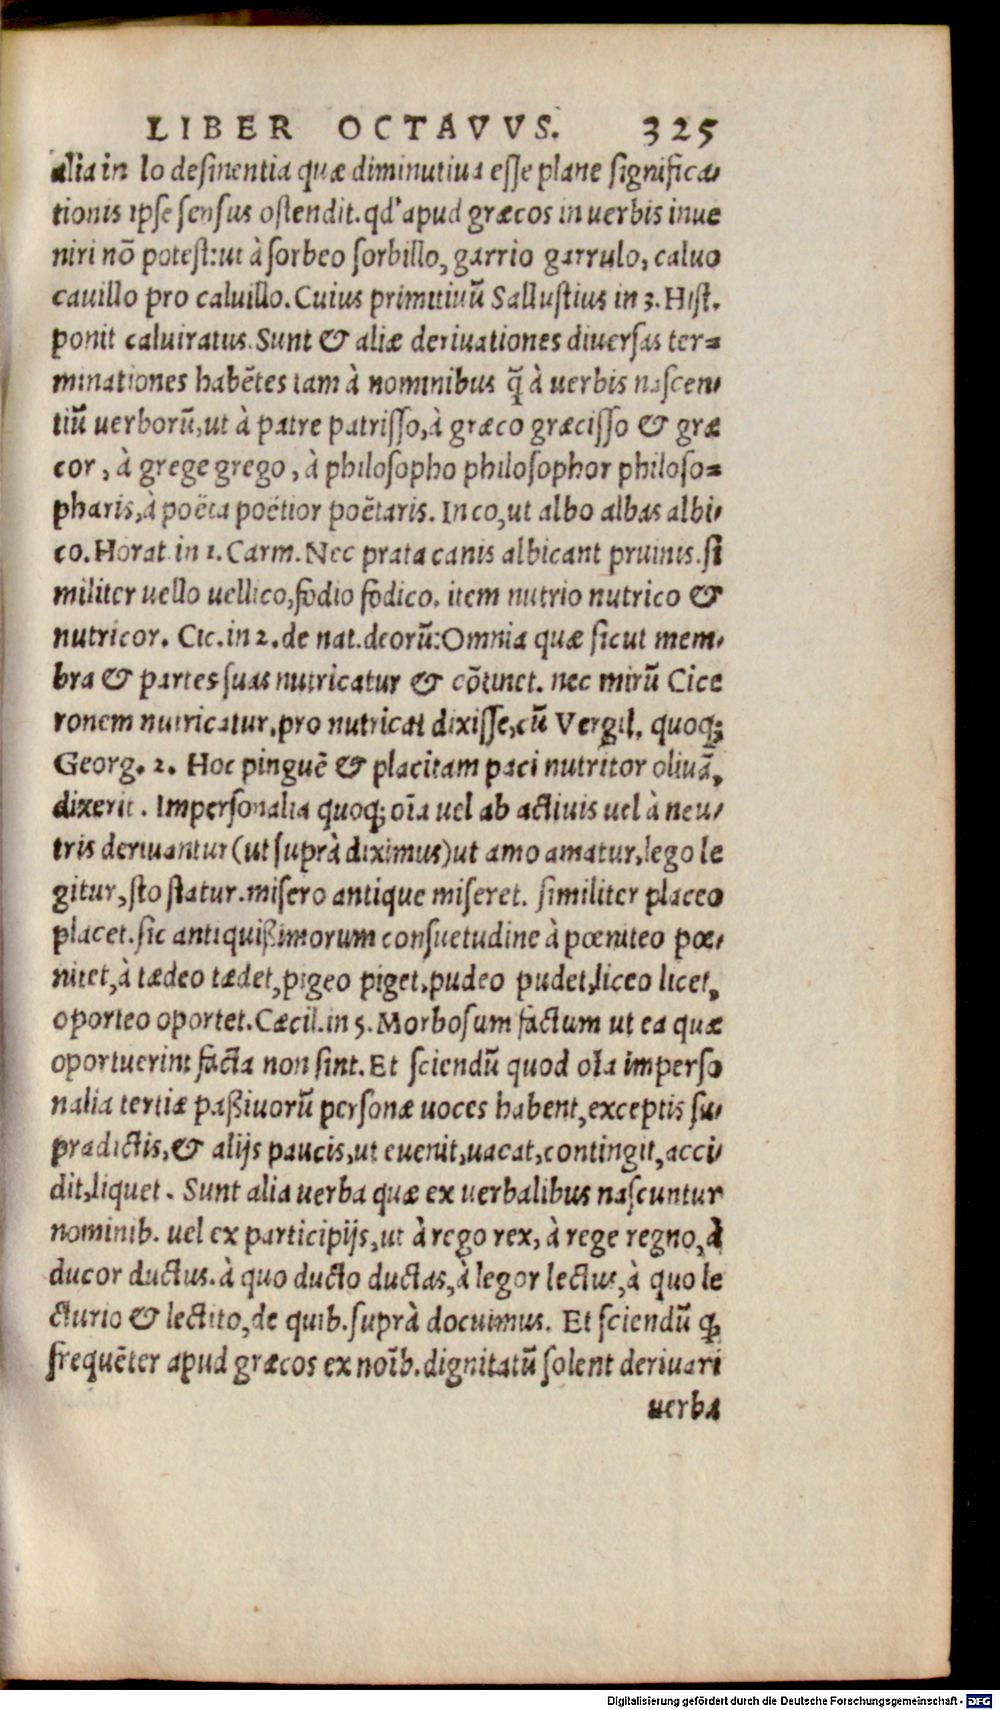 LIBER OCTAVVS. 325
alia in lo desinentia quæ diminutiua esse plane significa-
tionis ipse sensus ostendit. qd' apud græcos in uerbis inue
niri nō potest: ut à sorbeo sorbillo, garrio garrulo, caluo
cauillo pro caluillo. Cuius primitiuū Sallustius in 3. Hist.
ponit caluiratus. Sunt & aliæ deriuationes diuersas ter-
minationes habētes tam à nominibus q̄ à uerbis nascen-
tiū uerborū, ut à patre patrisso, à græco græcisso & græ
cor, à grege grego, à philosopho philosophor philoso-
pharis, à poëta poëtior poëtaris. In co, ut albo albas albi-
co. Horat. in 1. Carm. Nec prata canis albicant pruinis. si
militer uello uellico, fodio fodico. item nutrio nutrico &
nutricor. Cic. in 2. de nat. deorū: Omnia quæ sicut mem-
bra & partes suas nutricatur & cōtinet. nec mirū Cice
ronem nutricatur, pro nutricat dixisse, cū Vergil. quoq;
Georg. 2. Hoc pinguē & placitam paci nutritor oliuā,
dixerit. Impersonalia quoq; oīa uel ab actiuis uel à neu-
tris deriuantur (ut suprà diximus) ut amo amatur, lego le
gitur, sto statur. misero antique miseret. similiter placeo
placet. sic antiquißimorum consuetudine à pœniteo pœ-
nitet, à tædeo tædet, pigeo piget, pudeo pudet, liceo licet,
oporteo oportet. Cæcil. in 5. Morbosum factum ut ea quæ
oportuerint facta non sint. Et sciendū quod oīa imperso
nalia tertiæ paßiuorū personæ uoces habent, exceptis su-
pradictis, & alijs paucis, ut euenit, uacat, contingit, acci-
dit, liquet. Sunt alia uerba quæ ex uerbalibus nascuntur
nominib. uel ex participijs, ut à rego rex, à rege regno, à
ducor ductus. à quo ducto ductas, à legor lectus, à quo le
cturio & lectito, de quib. suprà docuimus. Et sciendū q̨
frequēter apud græcos ex noīb. dignitatū solent deriuari
uerba
Digitalisierung gefördert durch die Deutsche Forschungsgemeinschaft - DFG